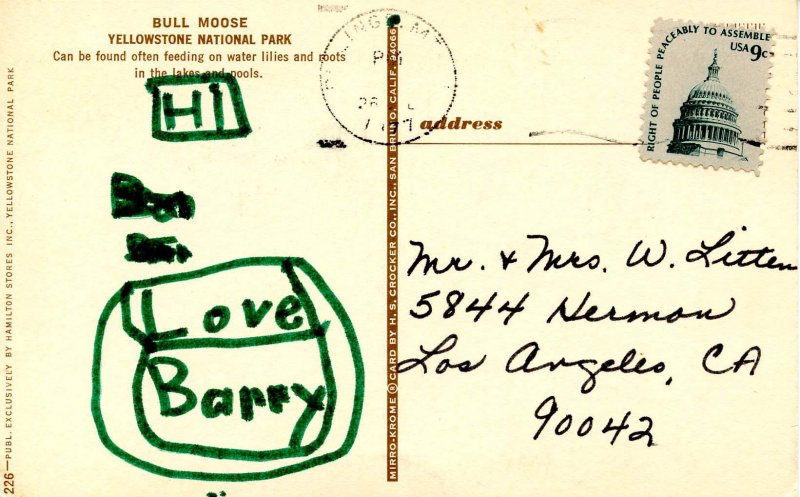 BULL MOOSE
YELLOWSTONE NATIONAL PARK
Can be found often feeding on water lilies and roots
in the lakes and pools.
HI
Love
Barry
226—PUBL. EXCLUSIVELY BY HAMILTON STORES INC., YELLOWSTONE NATIONAL PARK
MIRRO-KROME ® CARD BY H. S. CROCKER CO., INC., SAN BRUNO, CALIF. 94066
PM
address
RIGHT OF PEOPLE PEACEABLY TO ASSEMBLE
USA 9c
Mr. & Mrs. W. Litten
5844 Hermon
Los Angeles, CA
90042